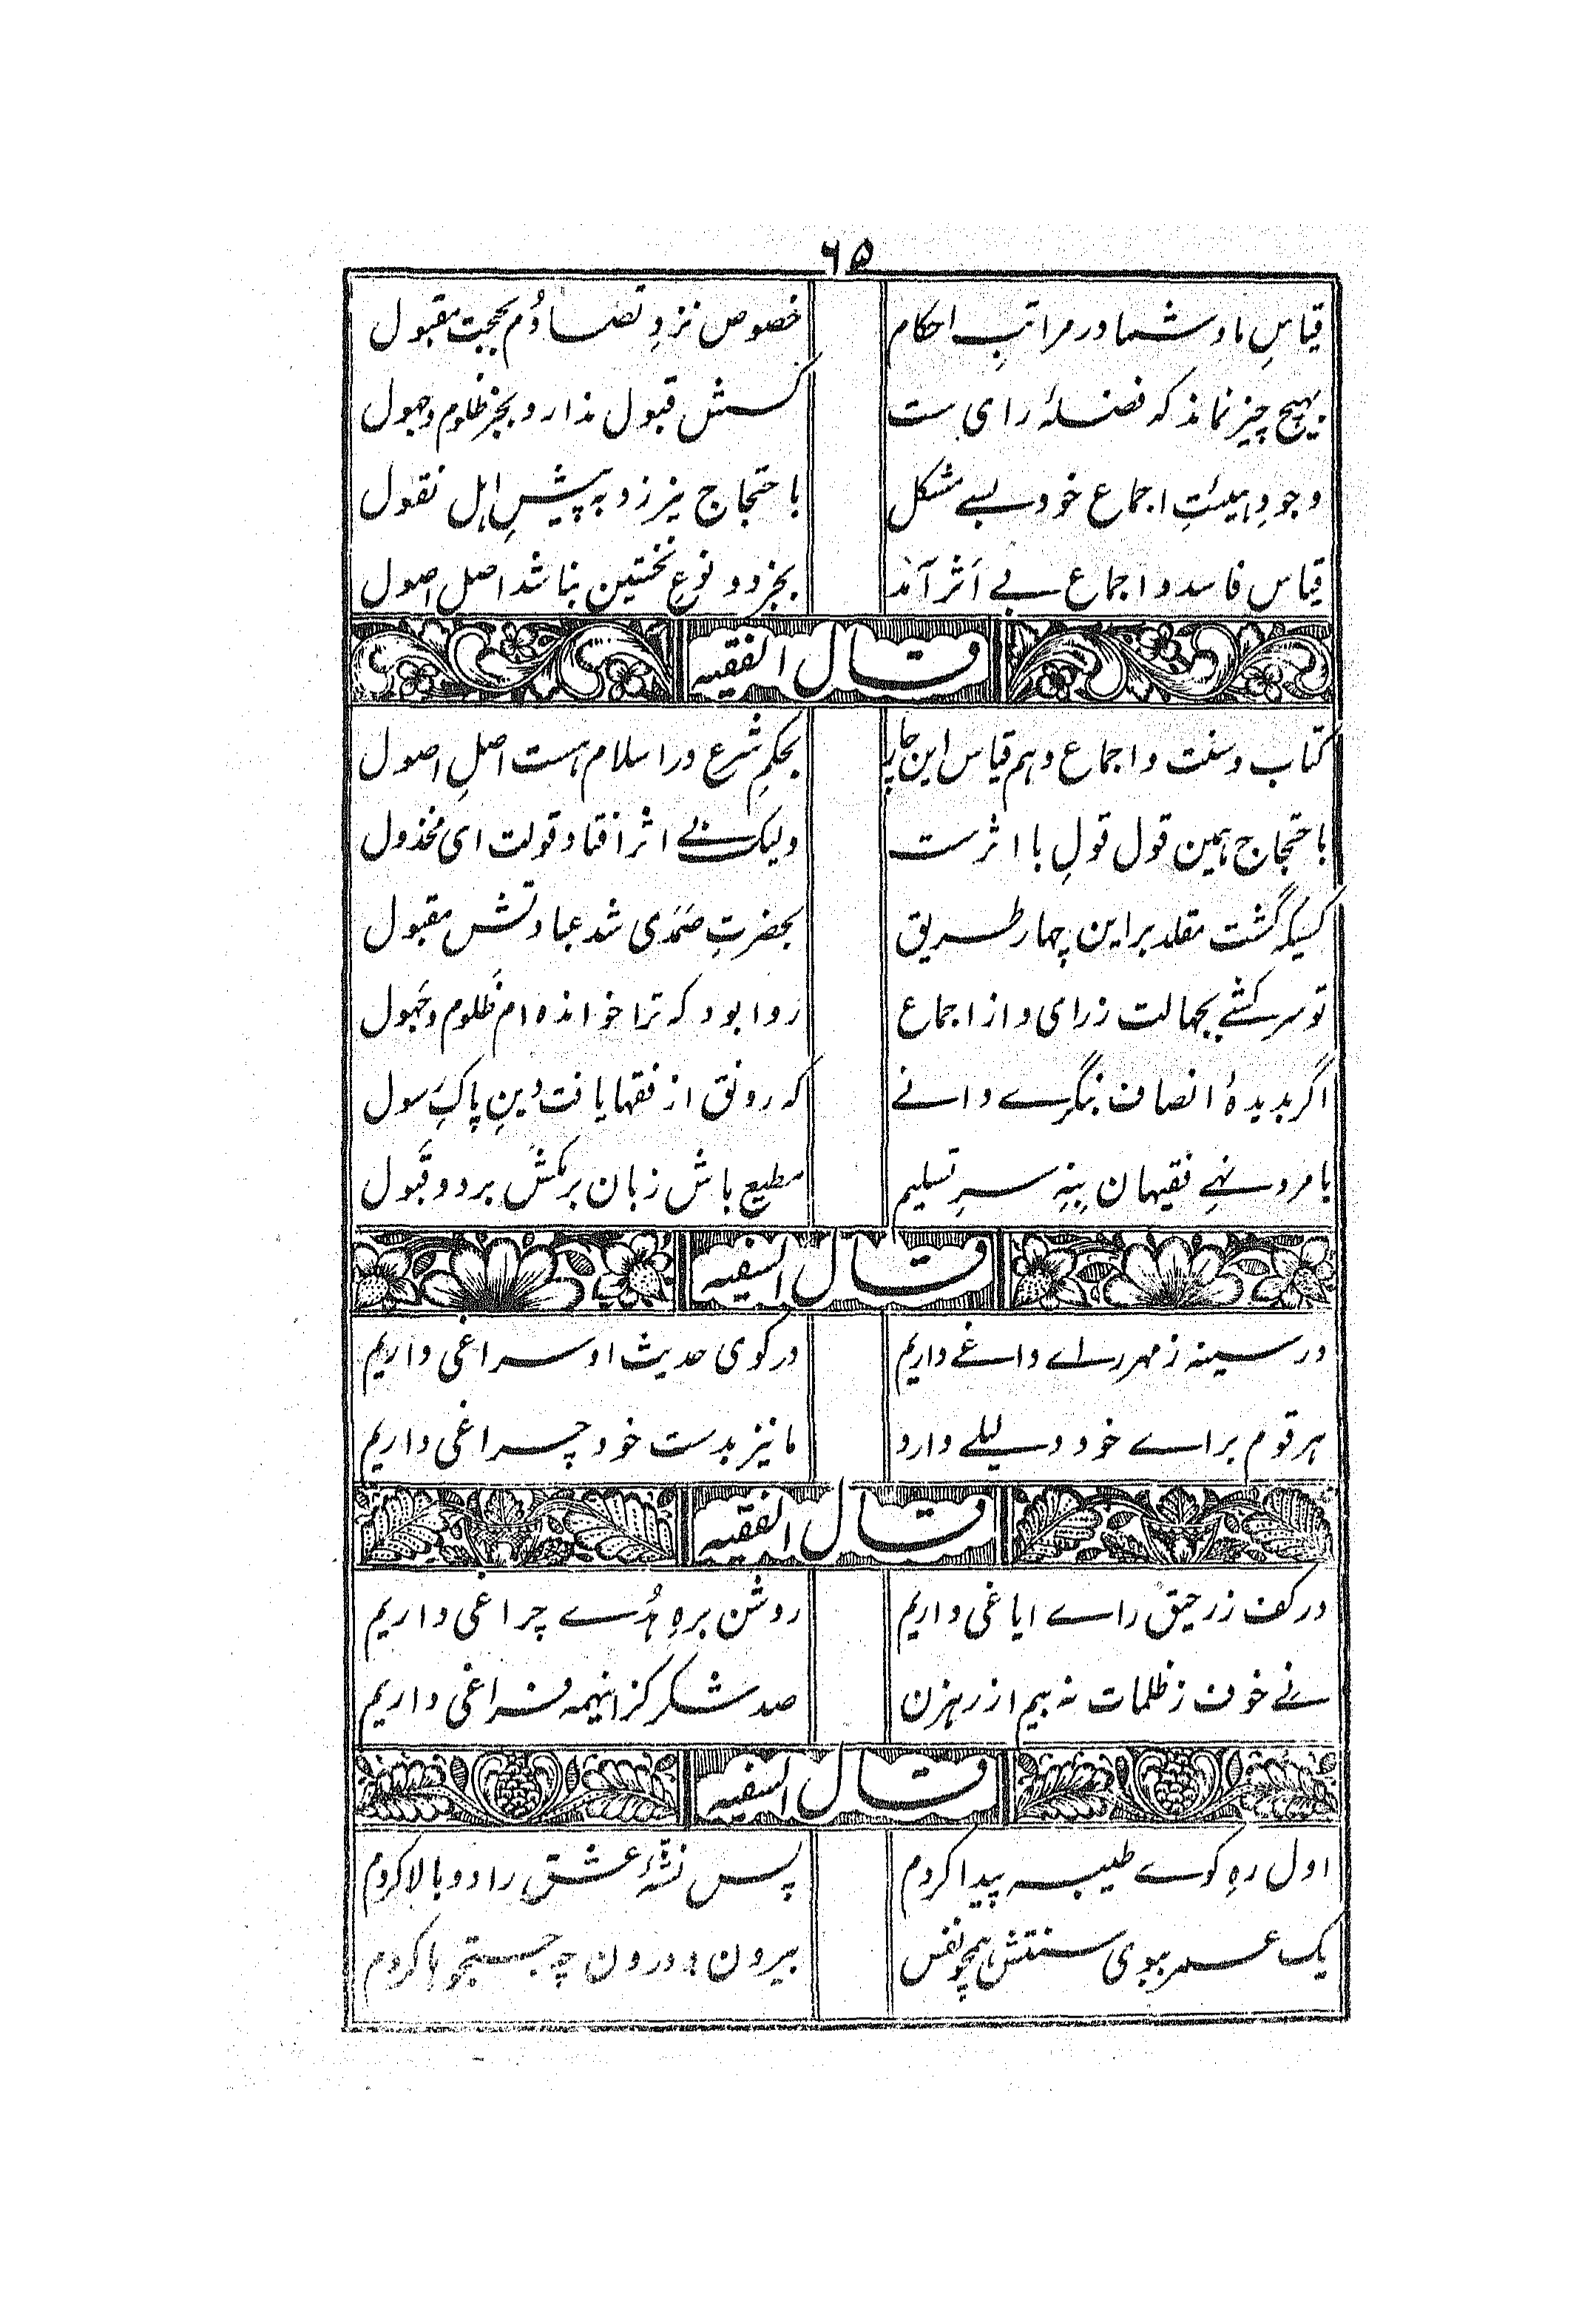 ۶۵
قیاسِ ما و شما در مراتبِ احکام خصوص نزدِ تصادُم بحجت مقبول
بہیچ چیز نماند کہ فضلۂ رای ست کسش قبول ندارد بجز ظلوم و جہول
وجودِ ہیئتِ اجماع خود بسے مشکل باحتجاج نیرزد بہ پیشِ اہل نقول
قیاس فاسد و اجماع بے اَثر آمد بجز دو نوعِ نخستین نباشد اصل اصول
قال الفقیہ
کتاب و سنت و اجماع و ہم قیاس این چار بحکمِ شرع در اسلام ہست اصلِ اصول
باحتجاج ہمین قول قولِ با اثرست ولیک بے اثر افتاد قولت ای مخذول
کسیکہ گشت مقلد بر این چہار طریق بحضرتِ صَمَدی شد عبادتش مقبول
تو سرکشے بجہالت ز رای و از اجماع روا بود کہ ترا خواندہ ام ظَلوم و جَہول
اگر بدیدۂ انصاف بنگرے دانے کہ رونق از فقہا یافت دینِ پاکِ رَسول
بامر و نہے فقیہان بِنِہ سرِ تسلیم مطیع باش زبان برمکش برد و قَبول
قال السفیہ
در سینہ ز مہر راے داغے داریم در کوی حدیث او سراغی داریم
ہر قوم براے خود دلیلے دارد ما نیز بدست خود چراغی داریم
قال الفقیہ
در کف ز رحیقِ راے ایاغی داریم روشن برہِ ہُدے چراغی داریم
نے خوف ز ظلمات نہ بیم از رہزن صد شکر کز اینہمہ فراغی داریم
قال السفیہ
اول رہِ کوے طیبہ پیدا کردم پس نشۂ عشق را دوبالا کردم
یک عمر ببوی سنتش ہمچو نفس بیرون و درون چہ جستجوہا کردم